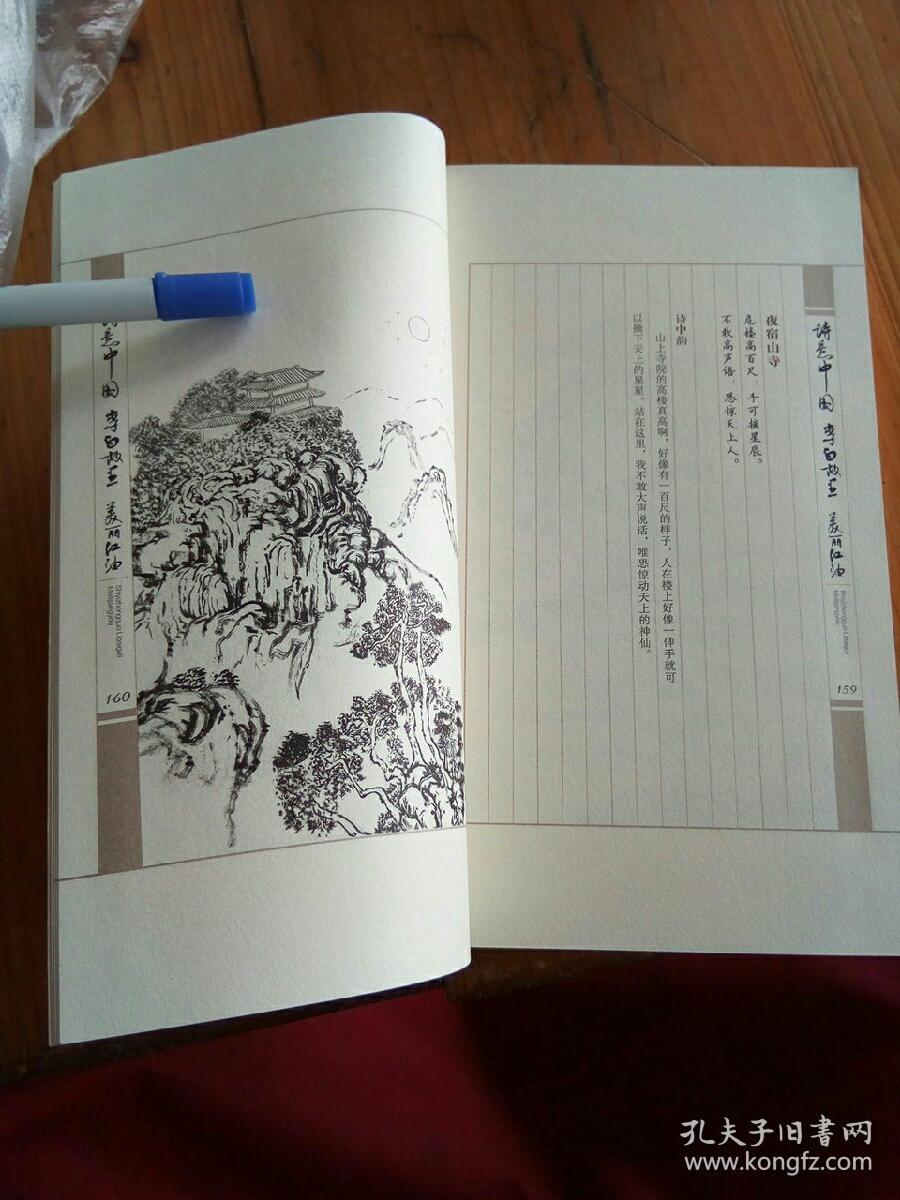 诗意中国 李白故里 美丽江油
159
夜宿山寺
危楼高百尺，手可摘星辰。
不敢高声语，恐惊天上人。
诗中韵
山上寺院的高楼真高啊，好像有一百尺的样子，人在楼上好像一伸手就可
以摘下天上的星星。站在这里，我不敢大声说话，唯恐惊动天上的神仙。
诗意中国 李白故里 美丽江油
160
孔夫子旧书网
www.kongfz.com